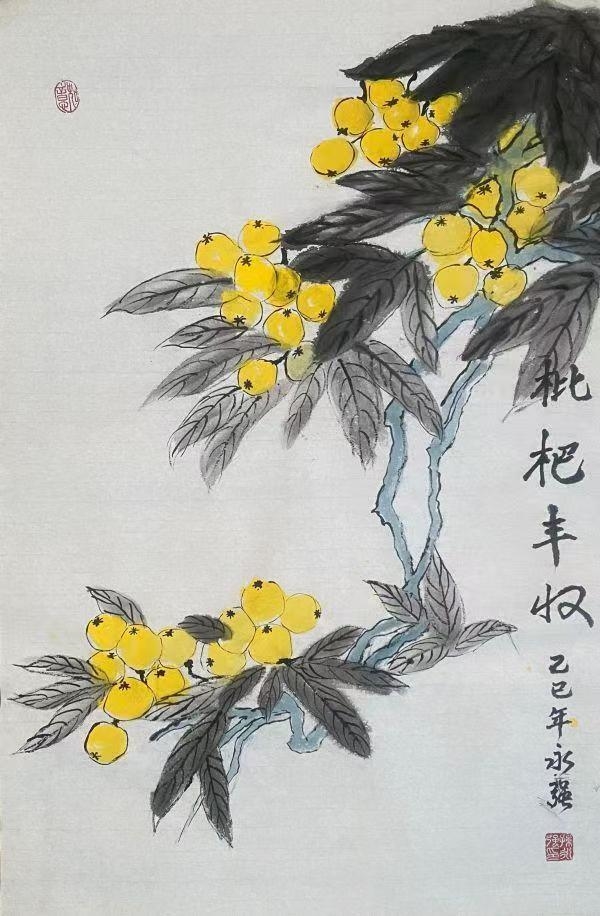 枇杷丰收
乙巳年永强